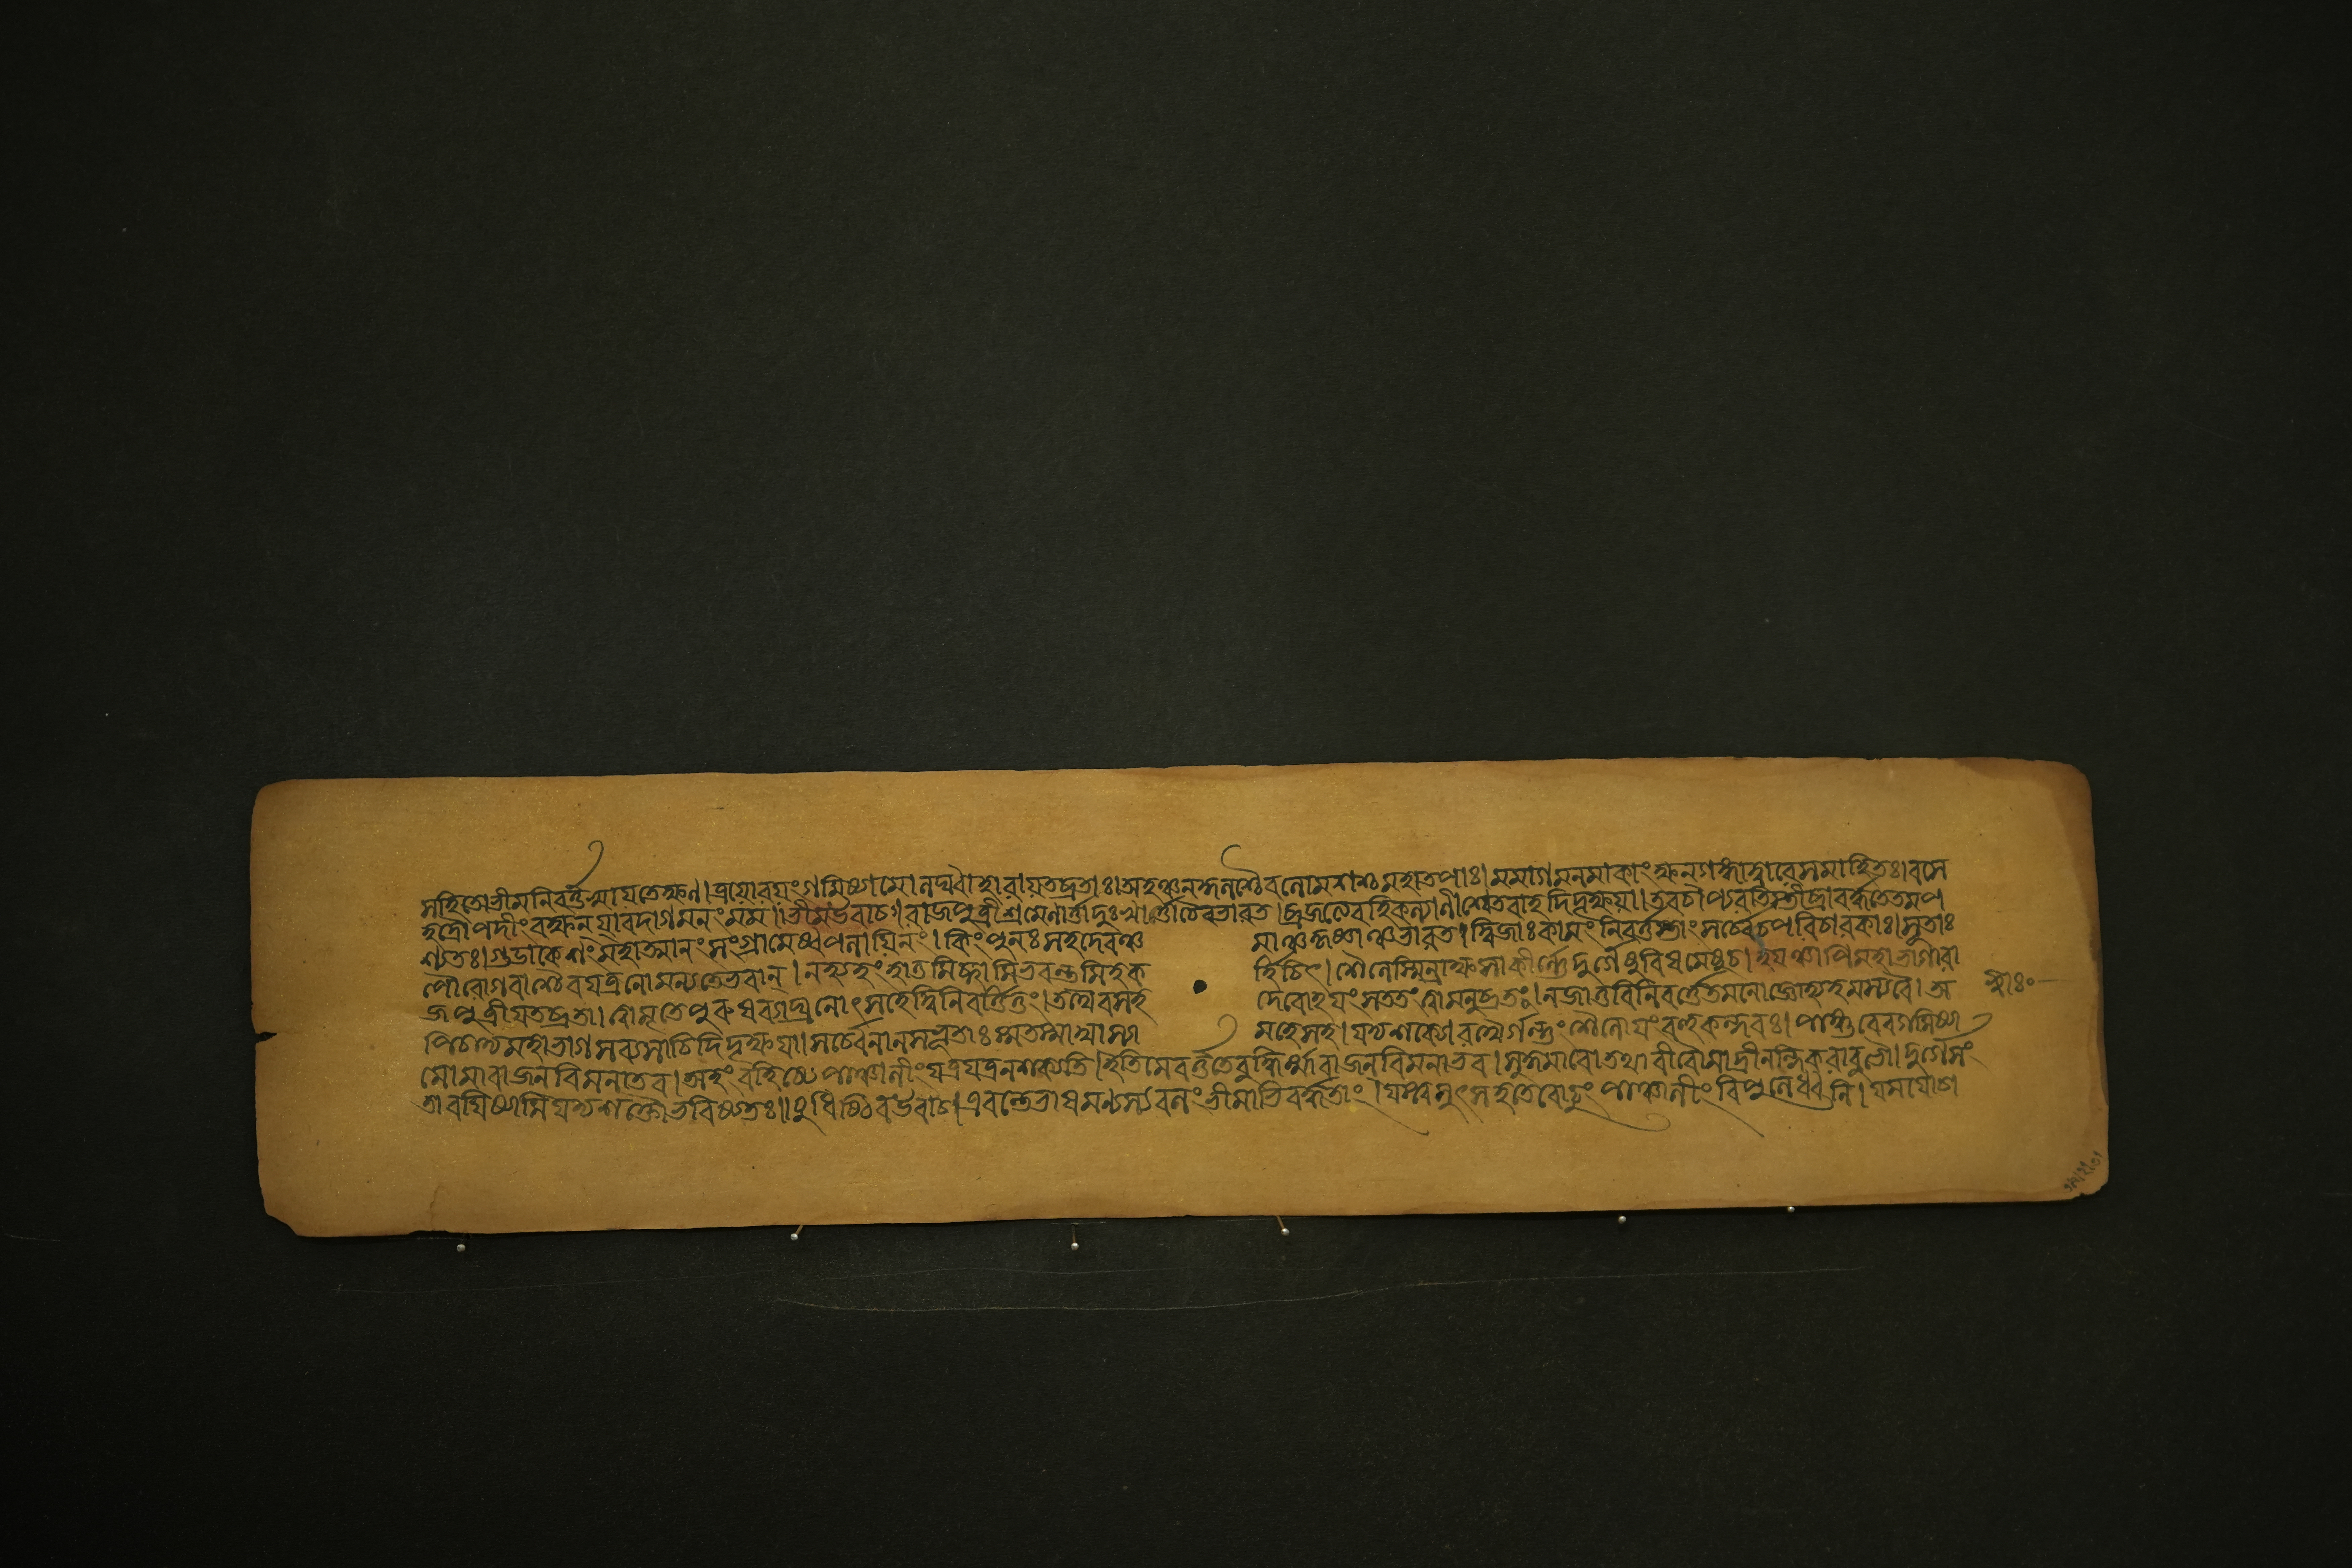 সহিতো ভীম নিবর্ত্তস্বায়তেক্ষণ। ত্রয়োবয়ং গমিষ্যামো লঘ্বাহারাযতব্রতাঃ। অহঞ্চ নকুলশ্চৈব লোমশশ্চ মহাতপাঃ। মমাগমনমাকাংক্ষন গঙ্গাদ্বারে সমাহিতঃ। বসে
হদ্রৌপদীং রক্ষন যাবদাগমনং মম।। ভীমউবাচ। রাজপুত্রীশ্রমেণার্ত্তাদুঃখার্ত্তাচৈবভারত। ব্রজত্যেবহিকল্যাণীশ্বেতবাহদিদৃক্ষয়া। তবচাপ্যরতিস্তীব্রাবর্দ্ধতেতমপ
শ্যতঃ। গুডাকেশং মহাত্মানং সংগ্রামেষ্বপলায়িনং। কিংপুনঃ সহদেবঞ্চ মাঞ্চকৃষ্ণাঞ্চভারত। দ্বিজাঃ কামং নিবর্ত্তন্তাং সর্ব্বেচপরিচারকাঃ। সুতাঃ
পৌরোগবাশ্চৈবযত্রনোমন্যতেভবান্। নহ্যহংহাতুমিচ্ছামিভবন্তমিহক র্হিচিৎ। শৈলেস্মিন্রাক্ষসাকীর্ণ্ণেদুর্গেষুবিষমেষুচ। ইয়ঞ্চাপিমহাভাগারা
জপুত্রীযতব্রতা। ত্বামৃতেপুরুষব্যাঘ্রনোৎসহেদ্বিনিবর্ত্তিতুং। তথৈবসহ দেবোহয়ংসততংত্বামনুব্রতঃ। নজাতুবিনিবর্ত্তেতমনোজ্ঞোহ্যহমস্যবৈ। অ
পিচাত্রমহাভাগসব্যসাচিদিদৃক্ষয়া। সর্ব্বেলালসভূতাঃ স্মতস্মাদ্যাস্যা মহেসহ। যদ্যশক্যোরথৈর্গন্তুং শৈলোয়ংবহুকন্দরঃ। পদ্ভিরেবগমিষ্যা
মোমারাজনবিমনাভব। অহং বহিষ্যেপাঞ্চালীংযত্রযত্রনশক্ষ্যতি। ইতিমেবর্ত্ততেবুদ্ধির্ম্মারাজনবিমনাভব। সুকুমারৌতথাবীরৌমাদ্রীনন্দিকরাবুভৌ। দুর্গেসং
তারয়িষ্যামিযদ্যশক্তৌভবিষ্যতঃ।। যুধিষ্ঠিরউবাচ। এবন্তেভাষমাণস্যবলংভীমাভিবর্দ্ধতাং। যস্ত্বমুৎসহসেবোঢুং পাঞ্চালীং বিপুলেধ্বনি। যমযোশ্চ